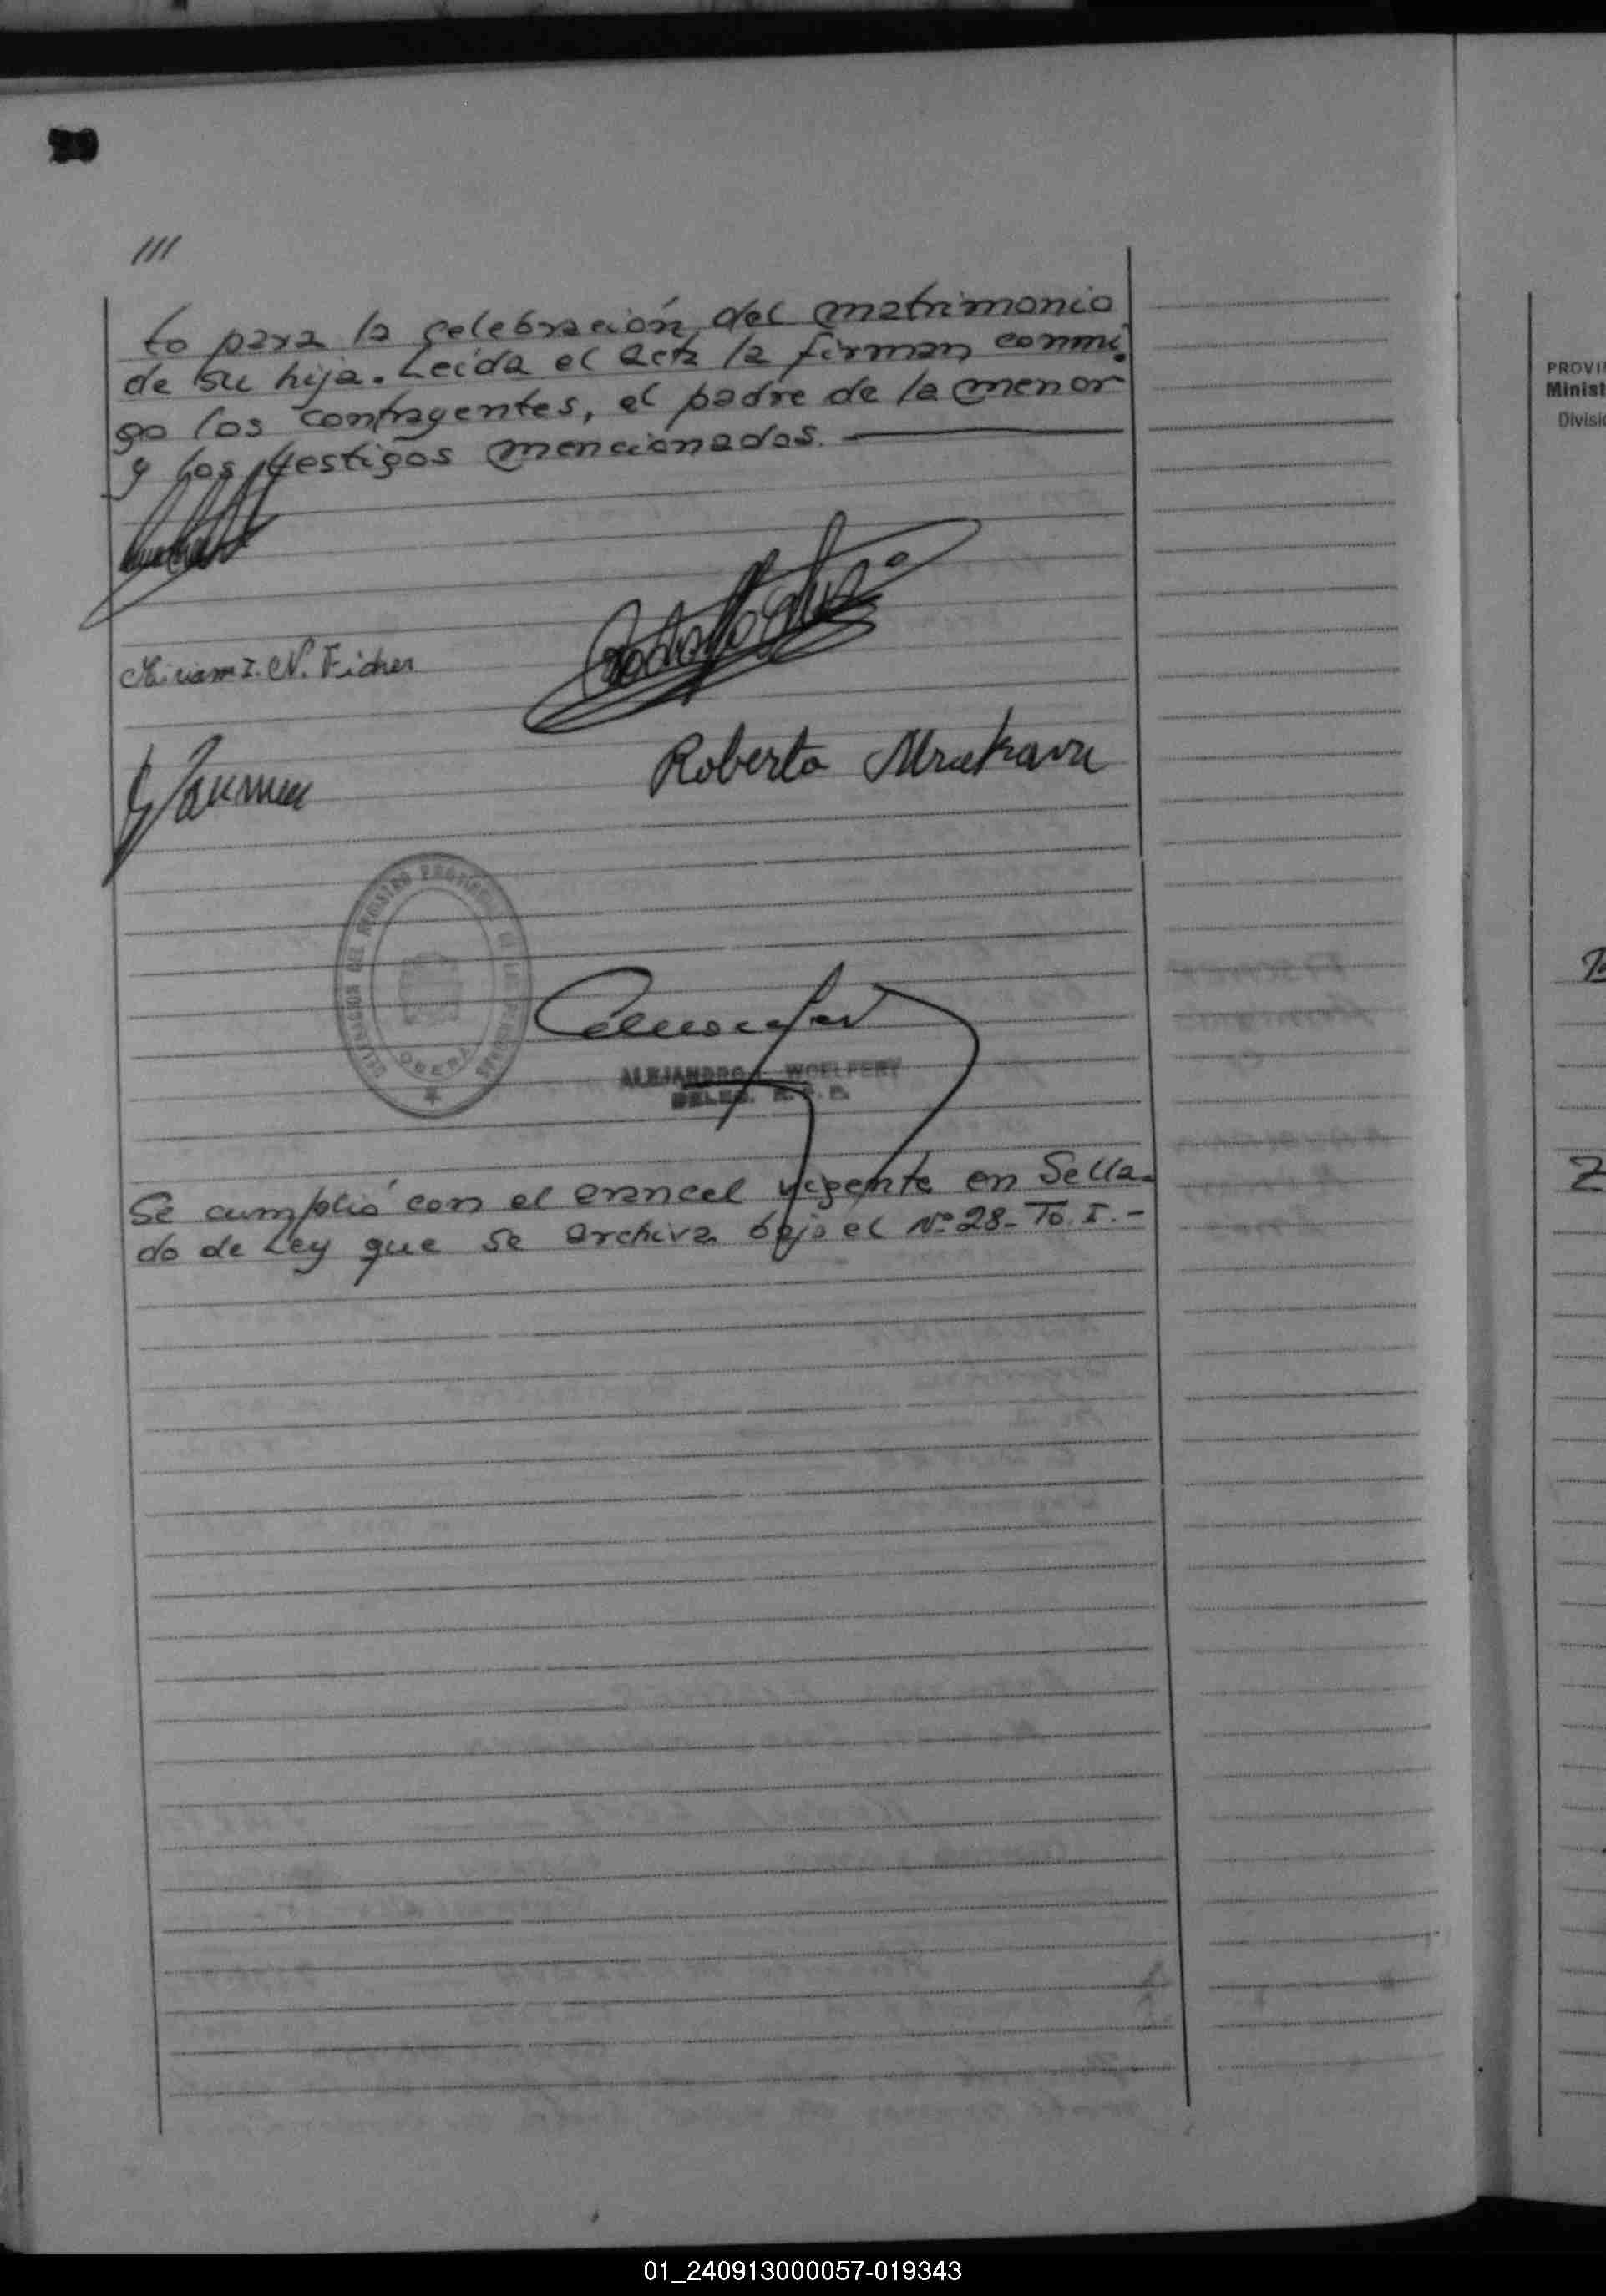 ///
to para la celebración del matrimonio
de su hija. Leída el acta la firman conmi-
go los contrayentes, el padre de la menor
y los testigos mencionados.
Miriam I. N. Ficher
Roberto
DELEGACION DEL REGISTRO PROVINCIAL DE LAS PERSONAS
OBERA
ALEJANDRO L. WOELFERT
DELEG. R. P. P.
Se cumplió con el arancel vigente en Sella-
do de Ley que se archiva bajo el Nº 28- To. I.-
PROVI
Minist
Divisi
01_240913000057-019343